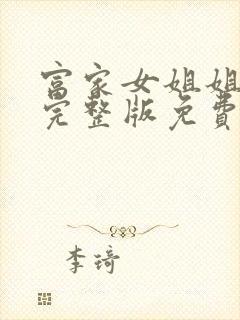 富家女姐姐
完整版免费
李琦